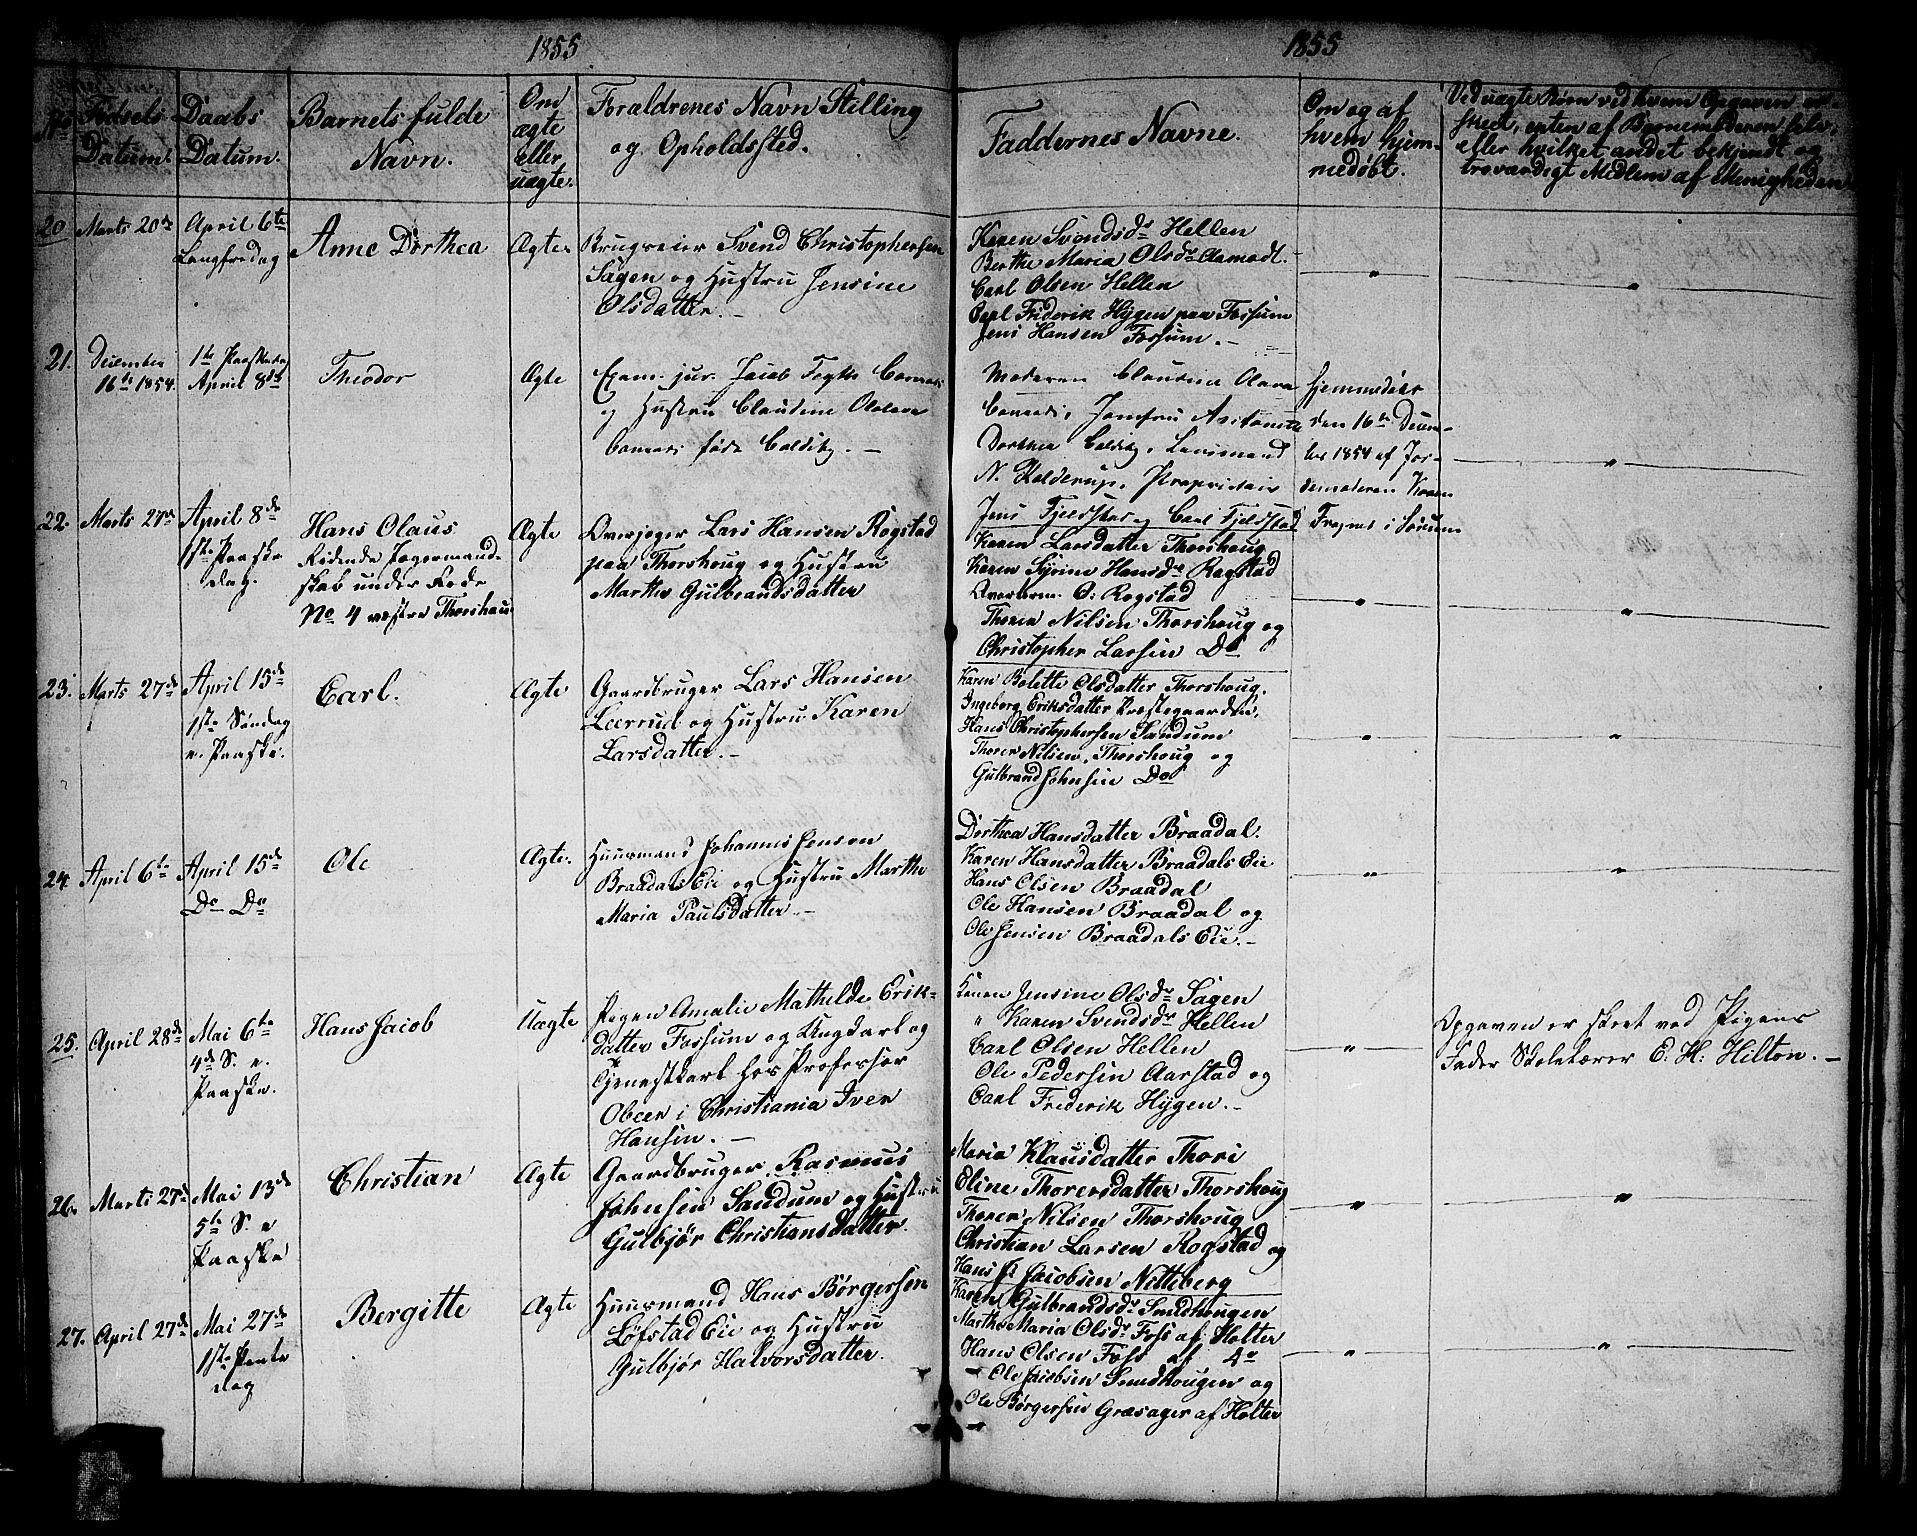 1855
1855
No
Fødsels Datum.
Daabs Datum.
Barnets fulde Navn.
Om ægte eller uægte.
Foraldrenes Navn Stilling og Opholdsted.
Faddernes Navne.
Om og af hvem hjemmedøbt.
Ved uægte Børn ved hvem Opgaven er skeet, enten af Barnemoderen selv, eller hvilket andet bekjendt og troværdigt Medlem af Menigheden
20
Marts 20de
April 6te
Langfredag
Anne Dorthea
Ægte
Brugseier Svend Christophersen
Sagen og Hustru Jensine
Olsdatter. –
Karen Svendsdr Hellen
Berthe Maria Olsdr Aamodt.
Carl Olsen Hellen
Carl Friderik Hÿgen paa Fossum
Jens Hansen Fossum. –
"
"
21.
December
16de 1854.
1ste Paaskedag
April 8de
Theodor
Ægte
Exam. jur. Jacob
og Hustru Claudine
født Colditz. –
Moderen Claudine Olava
Jomfru
Dorthea Colditz, Lensmand
N. Holderup, Proprietair
Jens Fjeldstad og Carl Fjeldstad
hjemmedøbt
den 16de Decem-
ber 1854 af Jor-
demoderen Karen
i Sørum
"
22.
Marts 27de
April 8de
1ste Paaske
dag.
Hans Olaus
Ridende Jægermand-
skab under Rode
No 4 vestre Thorshaug
Ægte
Overjeger Lars Hansen Rogstad
paa Thorshoug og Hustru
Marthe Gulbrandsdatter
Karen Larsdatter Thorshoug
Karen Syrine Hansdr Rogstad
O. Rogstad
Thorer Nilsen Thorshoug og
Christopher Larsen Do
"
"
23.
Marts 27de
April 15de
1ste Søndag
e. Paaske.
Carl.
Ægte
Gaardbruger Lars Hansen
Leerrud og Hustru Karen
Larsdatter. –
Karen Bolette Olsdatter Thorshoug.
Ingeborg Eriksdatter Præstegaarden,
Hans Christophersen Sandum
Thorer Nilsen, Thorshoug og
Gulbrand Johnsen Do
"
"
24.
April 6te
April 15de
Do Do
Ole
Ægte.
Huusmand Johannis Jensen
Braadals Eie og Hustru Marthe
Maria Paulsdatter. –
Dorthea Hansdatter Braadal.
Karen Hansdatter Braadals Eie
Hans Olsen Braadal
Ole Hansen Braadal og
Ole Jensen Braadals Eie. –
"
"
25.
April 28de
Mai 6te
4de S. e.
Paaske.
Hans Jacob
Uægte
Pigen Amalie Mathilde Erik-
datter Fossum og Ungkarl og
Tjenestkarl hos Professor
Obcen i Christiania Iver
Hansen. –
Konen Jensine Olsdr Sagen
" Karen Svendsdr Hellen
Carl Olsen Hellen
Ole Pedersen Aarstad og
Carl Frederik Hÿgen. –
"
Opgaven er skeet ved Pigens
Fader Skolelærer E. H. Hilton. –
26.
Marts 27de
Mai 13de
5te S. e
Paaske
Christian
Ægte
Gaardbruger Rasmus
Johnsen Sandum og Hustru
Gulbjør Christiansdatter.
Maria Klausdatter Thori
Eline Thorersdatter Thorshoug
Thorer Nilsen Thorshoug
Christian Larsen Rogstad og
Hans Jacobsen Nitteberg
"
"
27.
April 27de
Mai 27de
1ste Pintse
dag
Bergitte
Ægte
Huusmand Hans Børgersen
Løfstad Eie og Hustru
Gulbjør Halvorsdatter.
Karen Gulbrandsdr Smedhougen
Marthe Maria Olsdr Foss af Holter
Hans Olsen Foss af do
Ole Jacobsen Smedhougen og
Ole Børgersen Græsager af Holter
"
"